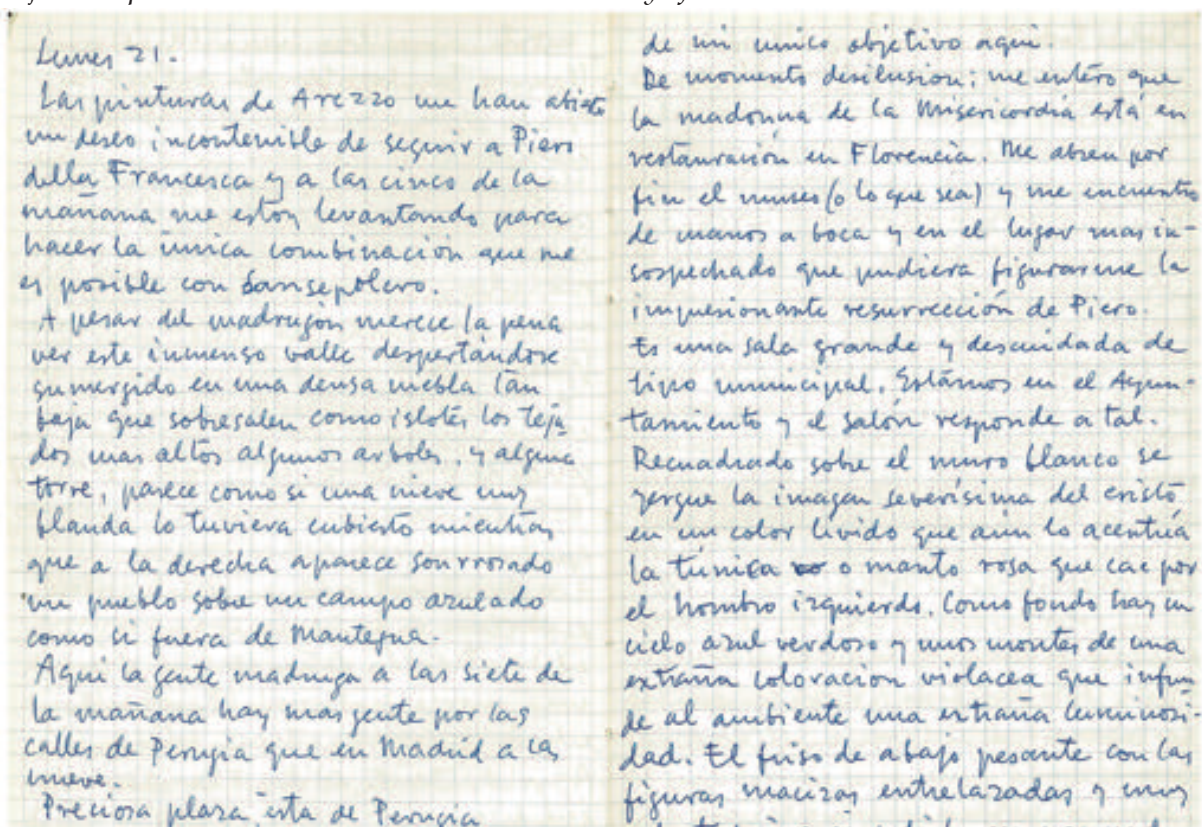 Lunes 21.
Las pinturas de Arezzo me han abierto
un deseo incontenible de seguir a Piero
della Francesca y a las cinco de la
mañana me estoy levantando para
hacer la única combinación que me
es posible con Sansepolcro.
A pesar del madrugon merece la pena
ver este inmenso valle despertándose
sumergido en una densa niebla tan
baja que sobresalen como islotes los teja
dos mas altos algunos arboles, y alguna
torre, parece como si una nieve muy
blanda lo tuviera cubierto mientras
que a la derecha aparece sonrrosado
un pueblo sobre un campo azulado
como si fuera de Mantegna.
Aqui la gente madruga a las siete de
la mañana hay mas gente por las
calles de Perugia que en Madrid a las
nueve.
Preciosa plaza esta de Perugia
de mi unico objetivo aqui.
De momento desilusion: me entero que
la madonna de la Misericordia está en
restauración en Florencia. Me abren por
fin el museo (o lo que sea) y me encuentro
de manos a boca y en el lugar mas in-
sospechado que pudiera figurarme la
impresionante resurrección de Piero.
Es una sala grande y descuidada de
tipo municipal. Estámos en el Ayun-
tamiento y el salón responde a tal.
Recuadrado sobre el muro blanco se
yergue la imagen severísima del cristo
en un color lívido que aún lo acentúa
la túnica o manto rosa que cae por
el hombro izquierdo. Como fondo hay un
cielo azul verdoso y unos montes de una
extraña coloracion violacea que infun
de al ambiente una extraña luminosi
dad. El friso de abajo pesante con las
figuras macizas entrelazadas y muy